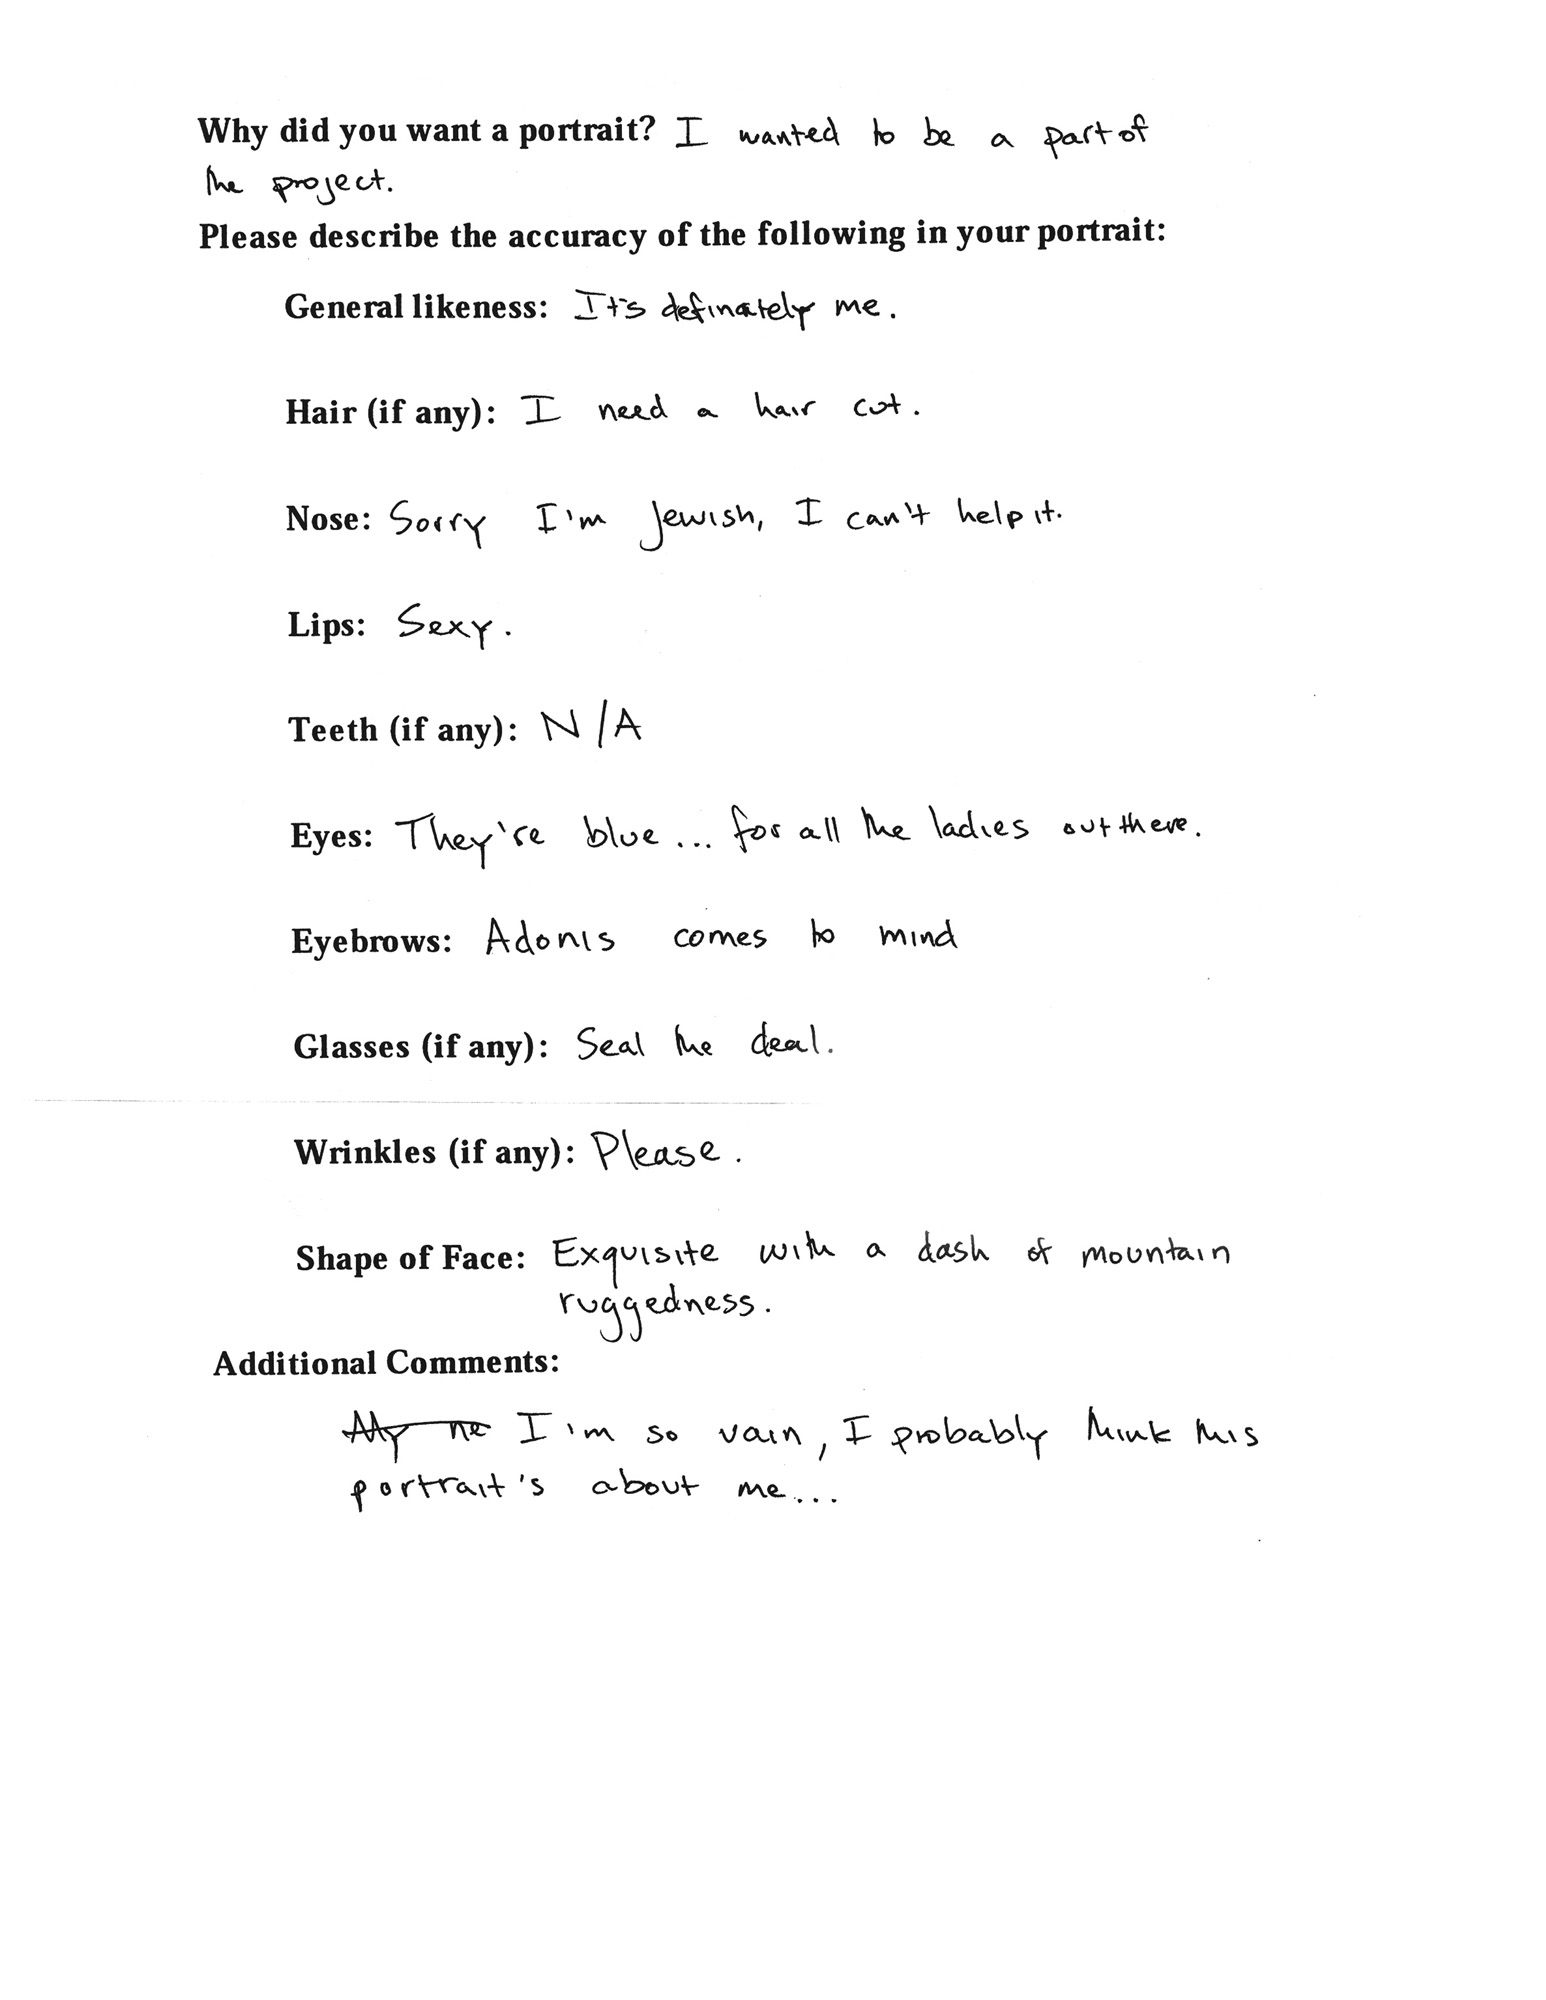 Why did you want a portrait? I wanted to be a part of
the project.
Please describe the accuracy of the following in your portrait:
General likeness: It's definately me.
Hair (if any): I need a hair cut.
Nose: Sorry I'm Jewish, I can't help it.
Lips: Sexy.
Teeth (if any): N/A
Eyes: They're blue... for all the ladies out there.
Eyebrows: Adonis comes to mind
Glasses (if any): Seal the deal.
Wrinkles (if any): Please.
Shape of Face: Exquisite with a dash of mountain
ruggedness.
Additional Comments:
My ne I'm so vain, I probably think this
portrait's about me...